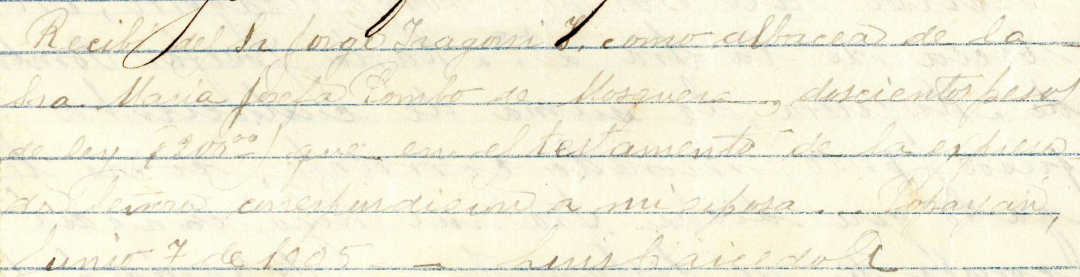 Recibí del Sr Jorge Iragorri I. como albacea de la
Sra. Maria Josefa Pombo de Mosquera, doscientos pesos
de ley ($200.00) que en el testamento de la expresa
da señora correspondieron a mi esposa. Popayán,
Junio 7 de 1905 — Luis Caicedo